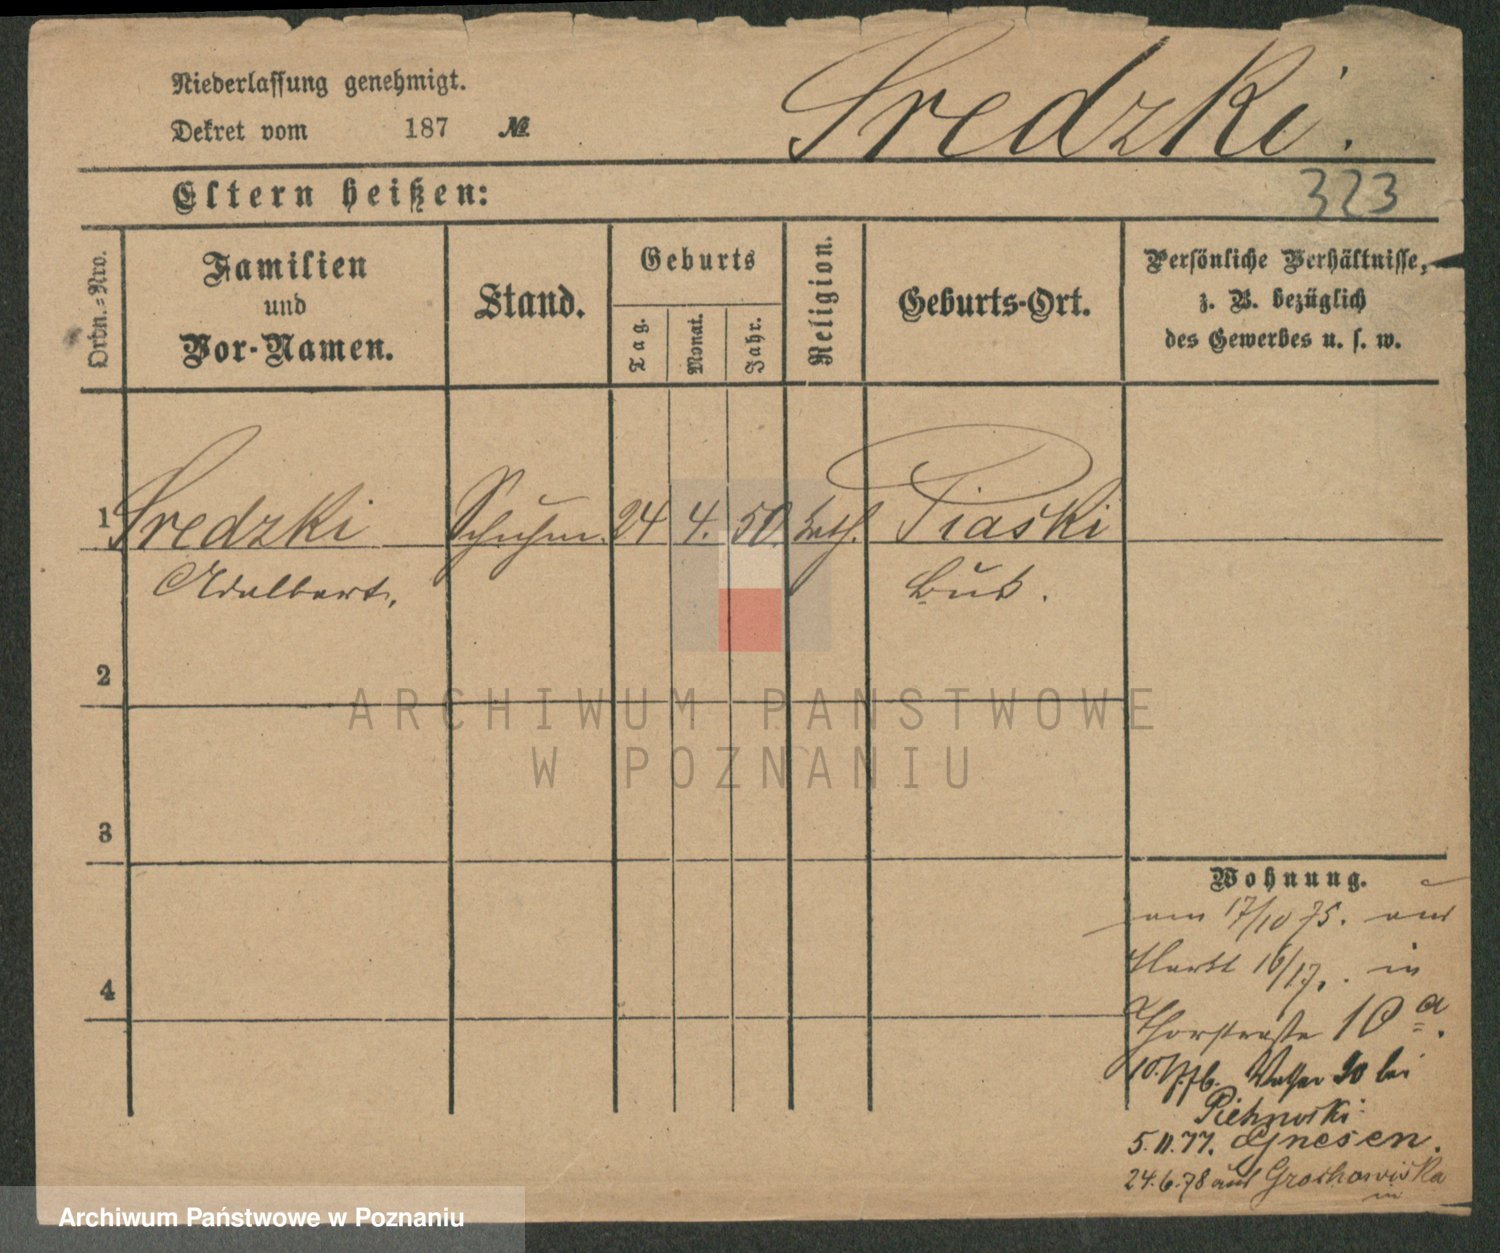 Niederlassung genehmigt.
Dekret vom 187 №
Sredzki.
323
Eltern heißen:
Ordn.=Nro.
Familien
und
Vor-Namen.
Stand.
Geburts
Tag.
Monat.
Jahr.
Religion.
Geburts-Ort.
Persönliche Verhältnisse,
z. B. bezüglich
des Gewerbes u. s. w.
1 Sredzki Schuhm. 24 4. 50. kath. Piaski
Adalbert. Buk.
2
3
4
Wohnung.
am 17/10 75. aus
Markt 16/17. in
Thorstraße 10 a.
bei
5.11.77. Gnesen.
24.6.78 aus Grochowiska
in
ARCHIWUM PAŃSTWOWE
W POZNANIU
Archiwum Państwowe w Poznaniu